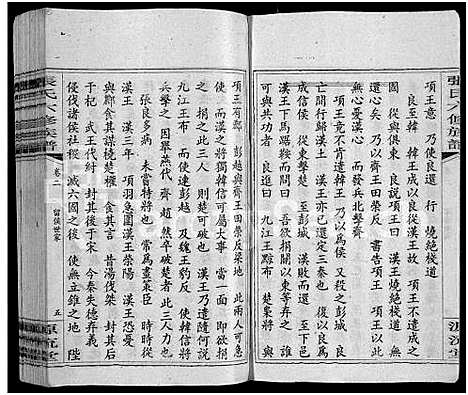 張氏六修族譜
項王意 乃使良還 行 燒絕棧道
良至韓 韓王成以良從漢王故 項王不遣成之國
從與俱東 良說項王曰 漢王燒絕棧道 無還心
矣 乃以齊王田榮反 書告項王 項王以此
無西憂漢心 而發兵北擊齊
項王竟不肯遣韓王 乃以爲侯 又殺之彭城 良
亡 間行歸漢王 漢王亦已還定三秦矣 復以良
爲成信侯 從東擊楚 至彭城 漢敗而還 至下邑
漢王下馬踞鞍而問曰 吾欲捐關以東等弃之 誰
可與共功者 良進曰 九江王黥布 楚梟將 與
項王有郄 彭越與齊王田榮反梁地 此兩人可急
使 而漢王之將獨韓信可屬大事 當一面 即欲捐
之 捐之此三人 則楚可破也 漢王乃遣隨何說
九江王布 而使人連彭越 及魏王豹反 使韓信將
兵擊之 因舉燕代齊趙 然卒破楚者 此三人力也
張良多病 未嘗特將也 常爲畫策臣 時時從
漢王 漢三年 項羽急圍漢王滎陽 漢王恐憂
與酈食其謀橈楚權 食其曰 昔湯伐桀 封其後
于杞 武王伐紂 封其後于宋 今秦失德弃義
侵伐諸侯社稷 滅六國之後 使無立錐之地 陛
張氏六修族譜
卷二
留侯世家
五